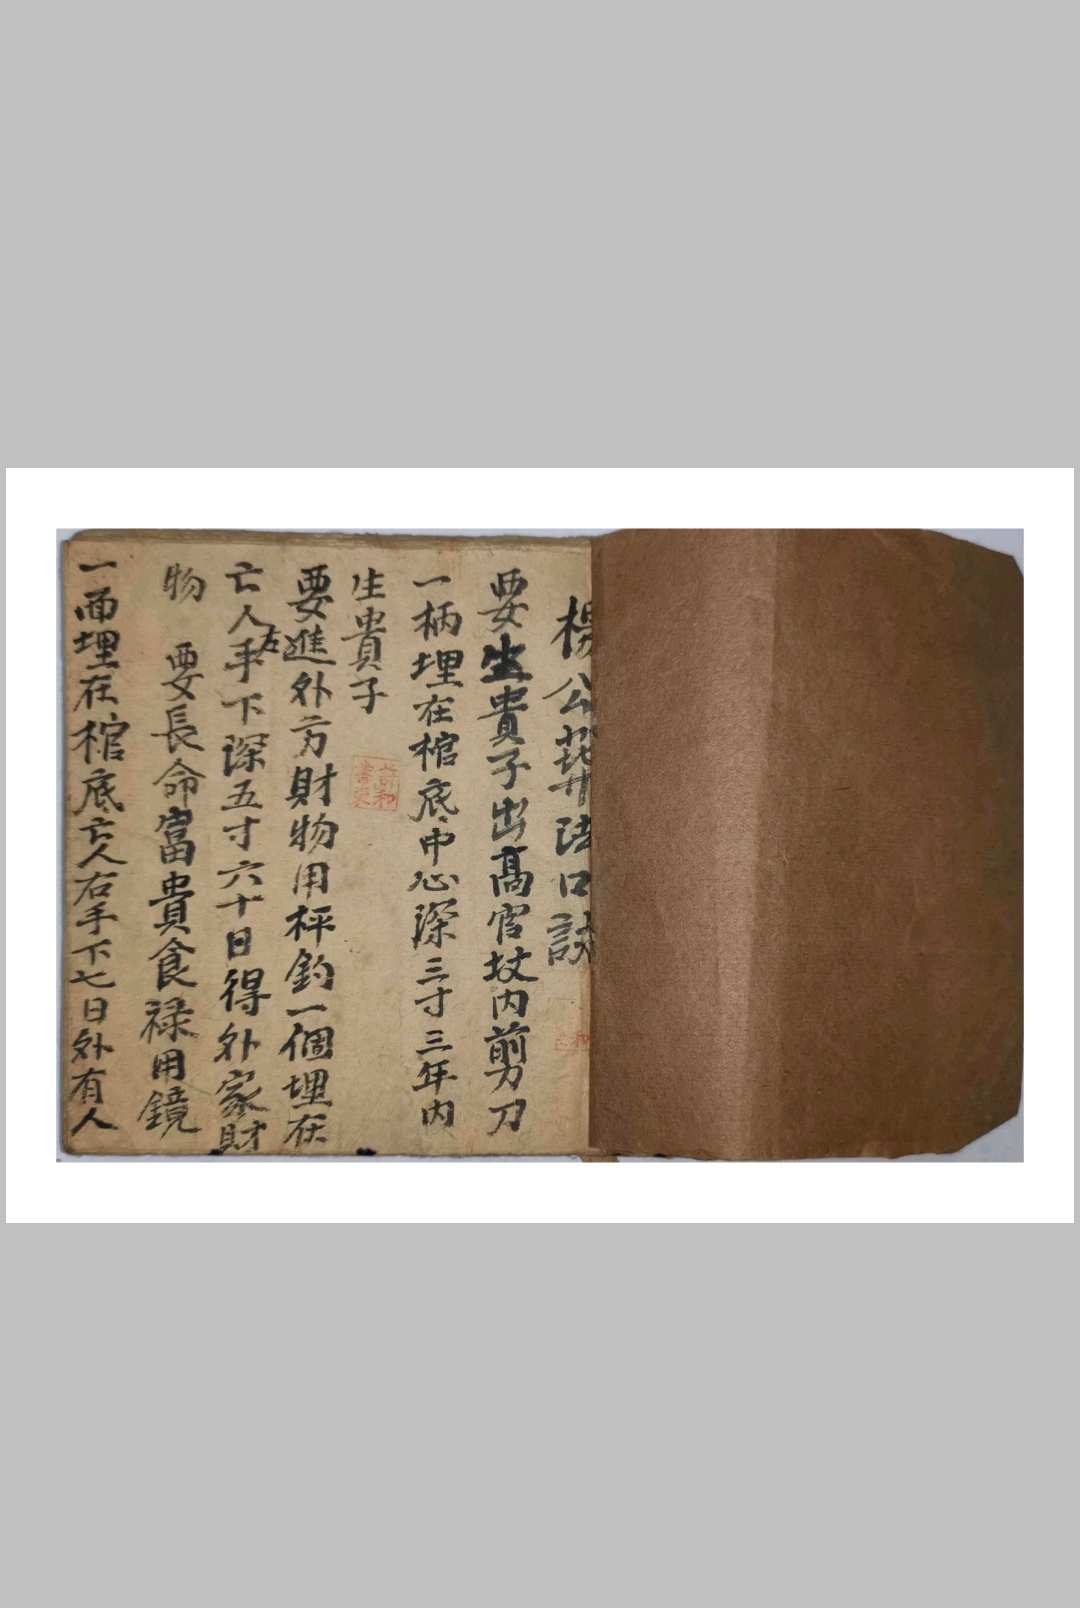 楊公葬法口訣
要生貴子出高官坟內剪刀
一柄埋在棺底中心深三寸三年內
生貴子
要進外方財物用秤鈎一個埋在
亡人左手下深五寸六十日得外家財
物 要長命富貴食禄用鏡
一面埋在棺底亡人右手下七日外有人